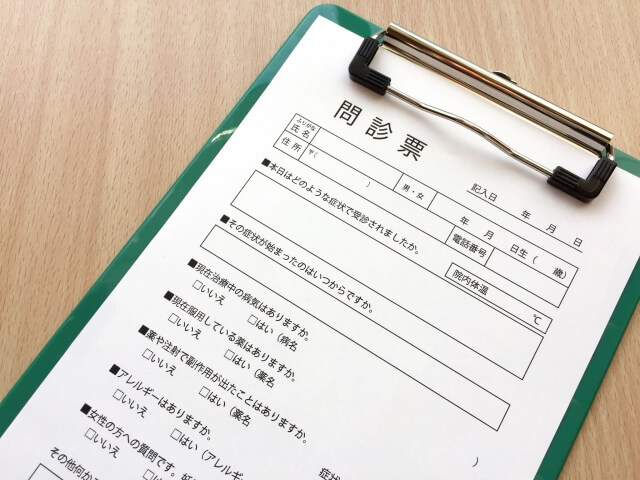 問診票
記入日　年　月　日
ふりがな
氏名
男・女
年　月　日生（　歳）
住所
〒（　）
電話番号
■本日はどのような症状で受診されましたか。
院内体温
℃
■その症状が始まったのはいつからですか。
■現在治療中の病気はありますか。
□いいえ　□はい（病名
■現在服用している薬はありますか。
□いいえ　□はい（薬名
■薬や注射で副作用が出たことはありますか。
□いいえ　□はい（薬名　）
■アレルギーはありますか。
□いいえ　□はい（アレルギー　症状
■女性の方への質問です。
□いいえ　□は
その他何か